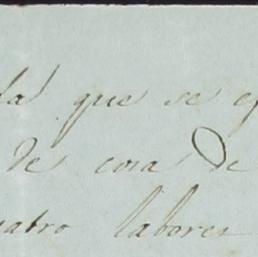 la que se
de cosa de
uatro labores